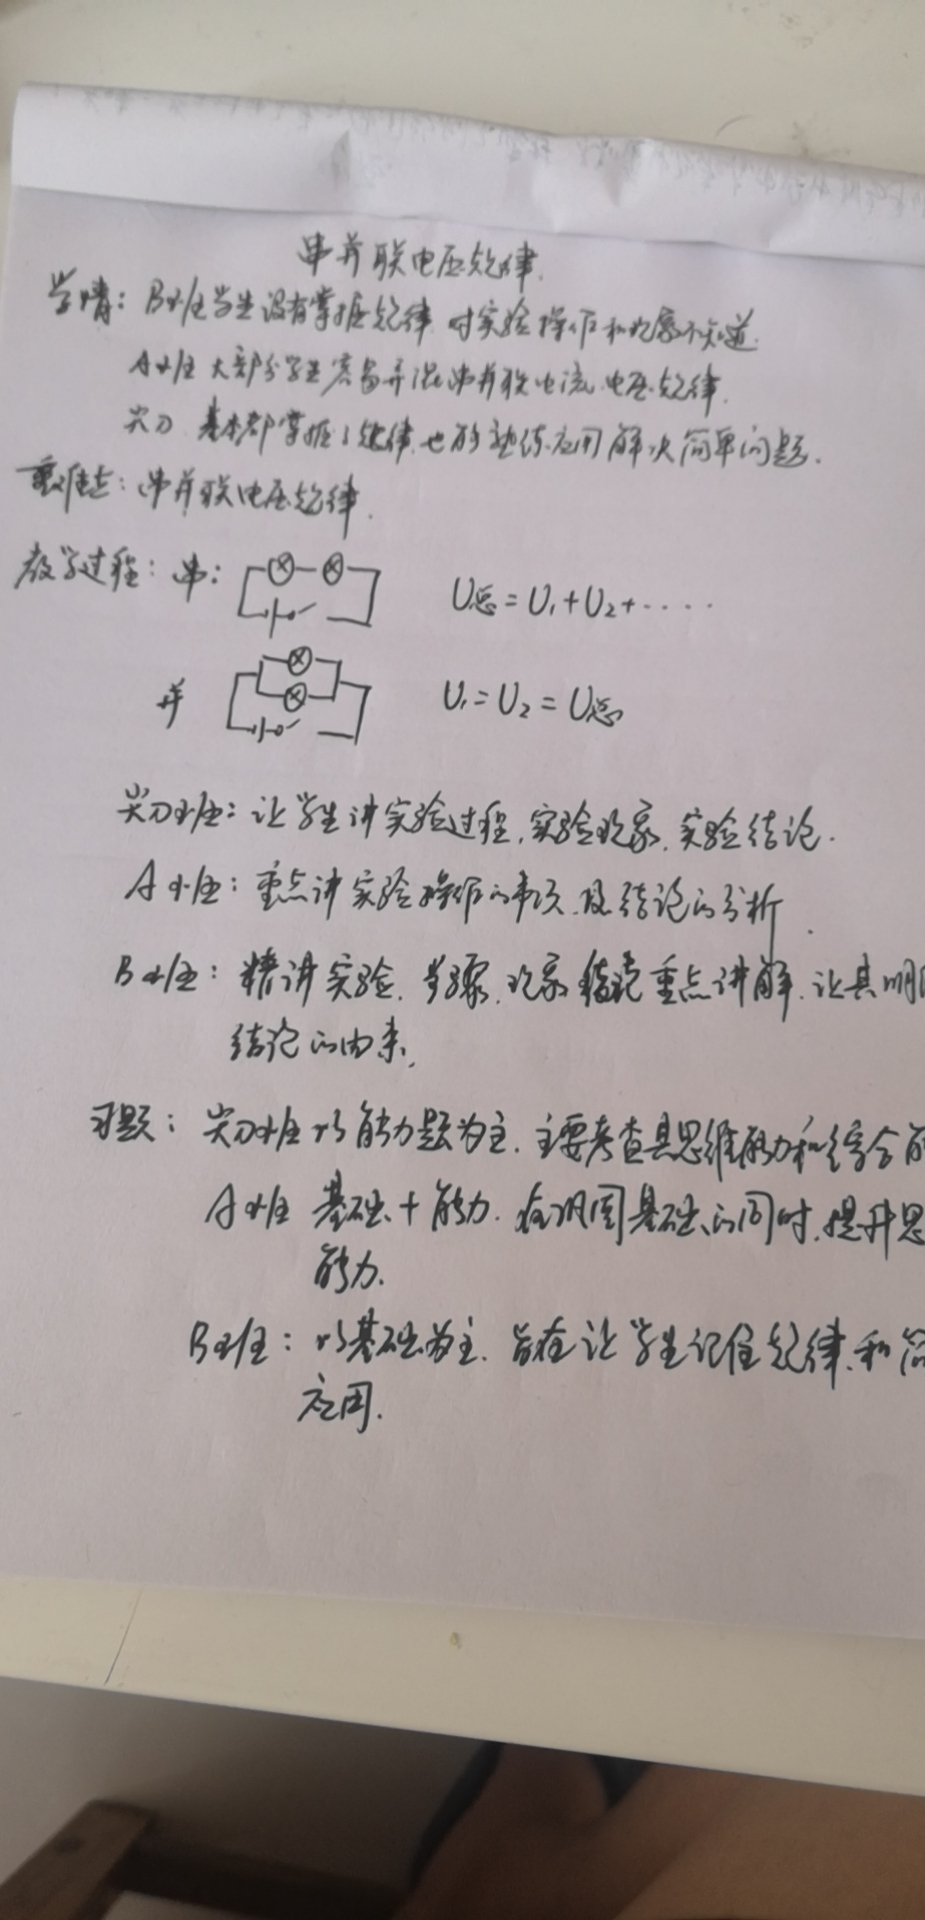 串并联电压规律.
学情: B班学生没有掌握规律 对实验操作和现象不知道.
A班 大部分学生容易弄混串并联电流、电压规律.
尖刀 基本都掌握了规律,也能熟练应用解决简单问题.
重难点: 串并联电压规律.
教学过程: 串: U总=U₁+U₂+····
并 U₁=U₂=U总
尖刀班: 让学生讲实验过程,实验现象,实验结论.
A班: 重点讲实验操作的事项及结论的分析.
B班: 精讲实验.步骤.现象 结论重点讲解.让其明
结论的由来.
习题: 尖刀班以能力题为主.主要考查其思维能力和综合
A班 基础+能力.在巩固基础的同时,提升思
能力.
B班: 以基础为主.旨在让学生记住规律.和简
应用.